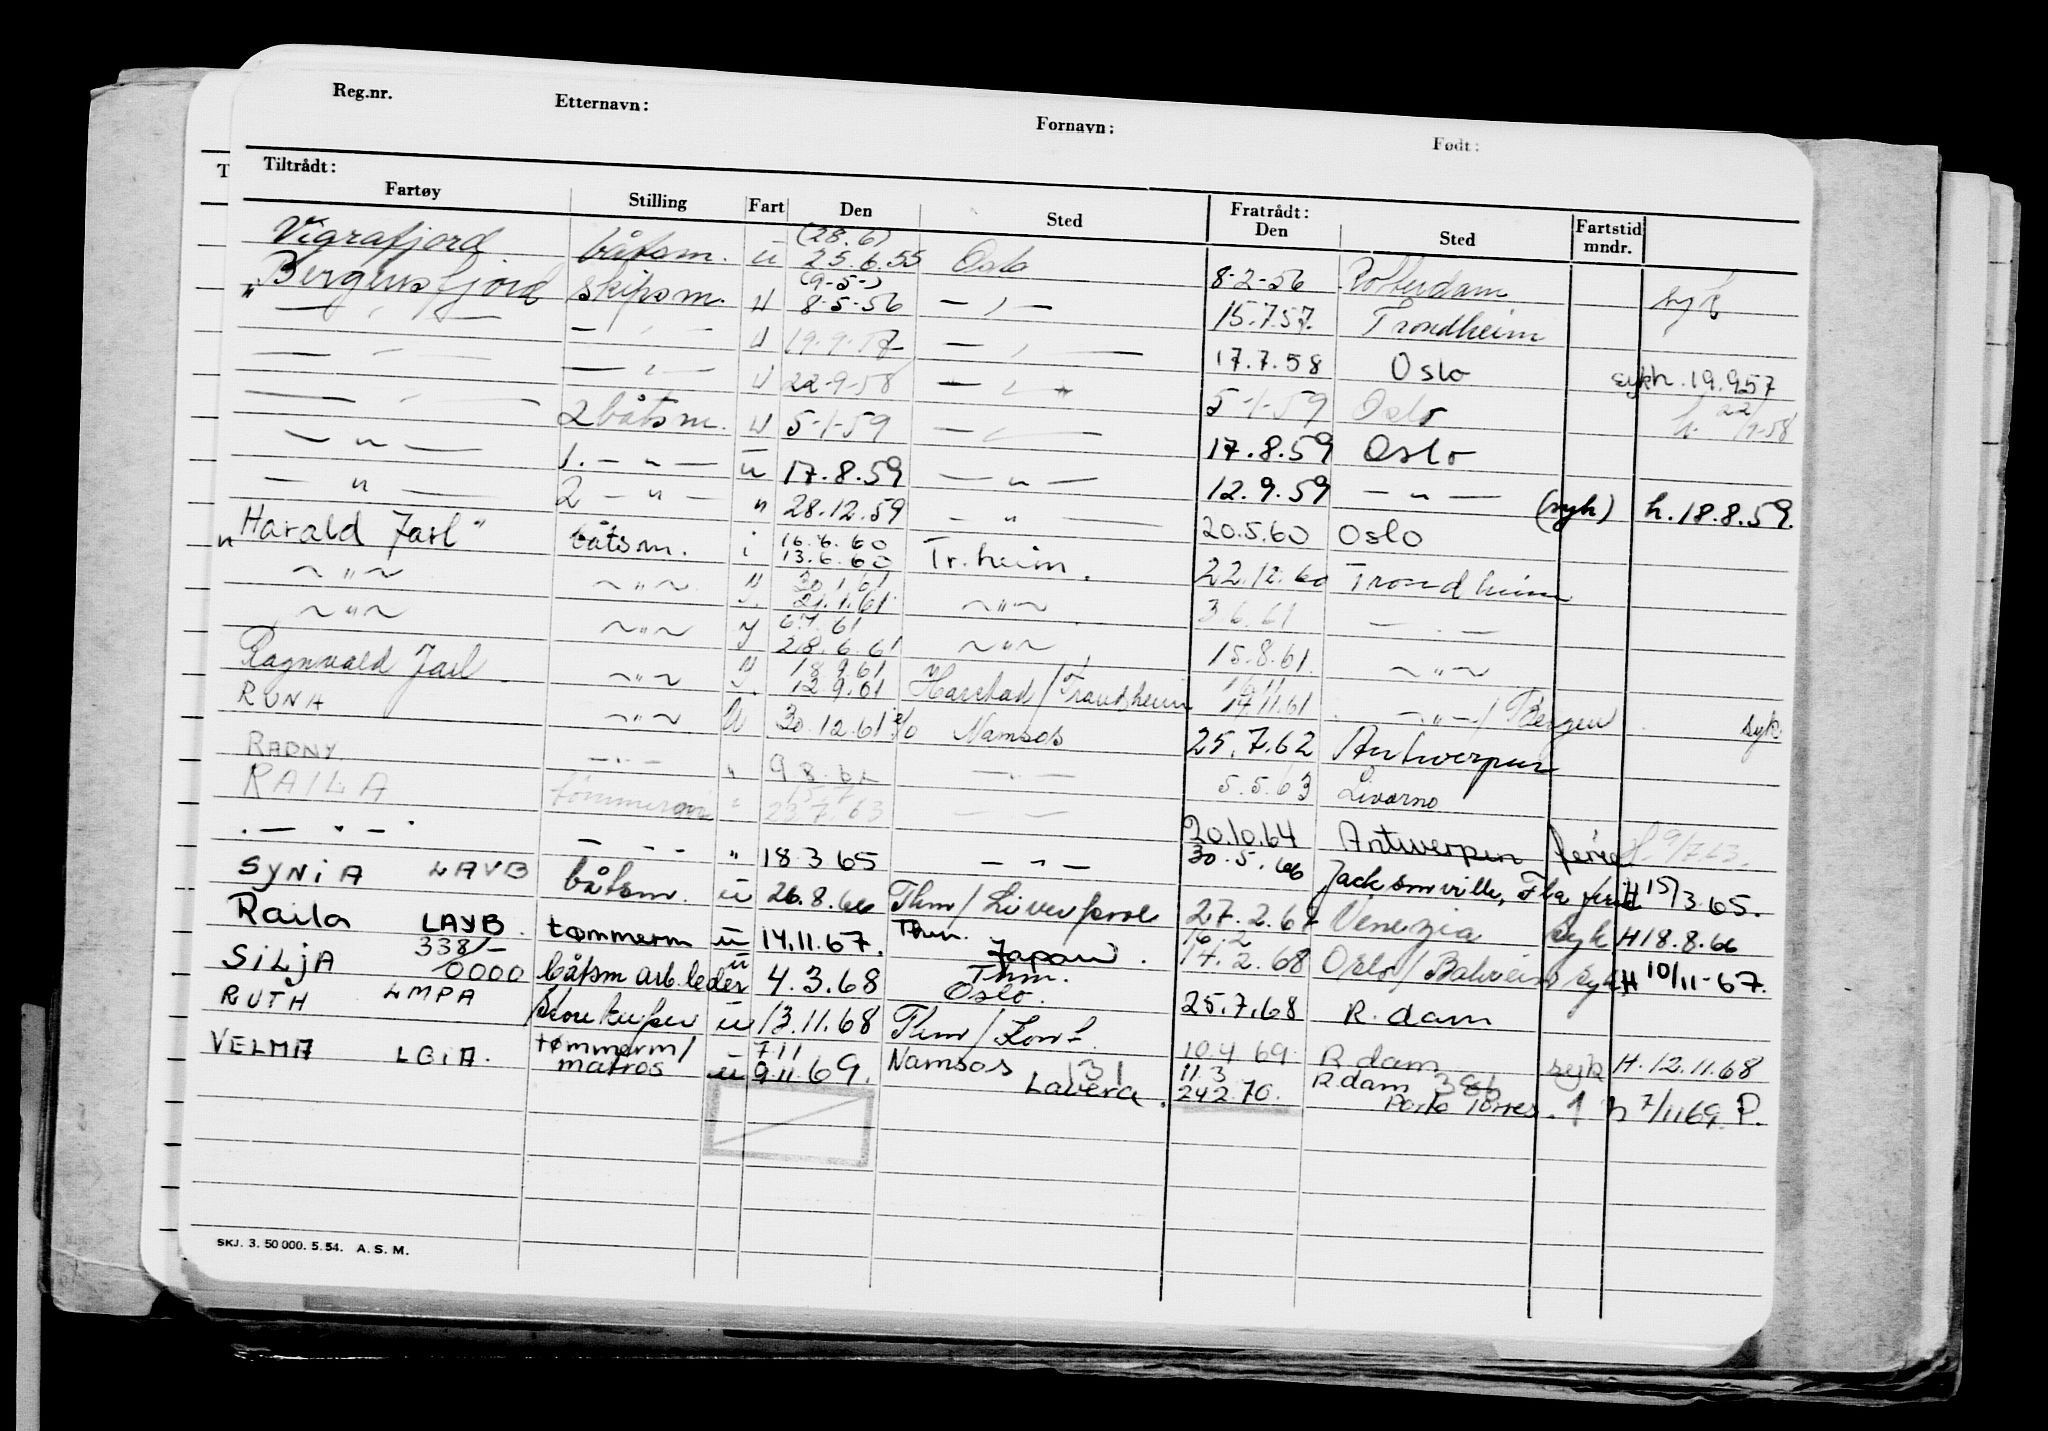 Reg.nr. Etternavn: Fornavn: Født:
Tiltrådt: Fratrådt:
Fartøy Stilling Fart Den Sted Den Sted Fartstid mndr.
Vigrafjord båtsm. u (28.6) 25.6.55 Oslo 8-2-56 Rotterdam syk
"Bergensfjord skipsm. u (9-5-) 8-5-56 — , — 15.7.57. Trondheim
— , — — , — u 19.9.57 — , — 17.7.58 Oslo sykh. 19.9.57
— , — — , — u 22-9-58 — , — 5-1-59 Oslo h. 22/9-58
— , — 2 båtsm. u 5-1-59 — , — 17.8.59 Oslo
— " — 1. — " — u 17.8.59 — " — 12.9.59 — " — (syk) h. 18.8.59.
— " — 2 — " — " 28.12.59 — " — 20.5.60 Oslo
"Harald Jarl" båtsm. i 16.6.60 13.6.60 Tr.heim. 22.12.60 Trondheim
~ " ~ ~ " ~ 30.1.61 21.1.61 ~ " ~ 3.6.61 — . —
~ " ~ ~ " ~ 6.7.61 28.6.61 ~ " ~ 15.8.61. ~ " ~
Ragnvald Jarl ~ " ~ 18 9.61 12 9.61 Harstad/Trondheim 17.11.61 — " — / Bergen syk
RUNA ~ " ~ u 30.12.61 Namsos 25.7.62 Antwerpen
RADNY — . — " 9 8.62 — . — 5.5.63 Livorno
RAILA tømmerm " 23.7.63 — — 20.10.64 Antwerpen ferie 9/7.63.
. — " — . — - - " 18 3 65 — " — 30.5.66 Jacksonville, Fla ferie H 15/3.65.
SYNIA LAVB båtsm. u 26.8.66 Thm/Liverpool 27.2.67 Venezia Syk H 18.8.66
Raila LAYB. tømmerm u 14.11.67. Thm. Japan. 16.2 14.2.68 Oslo/Bahrein syk H 10/11-67.
SILJA 338/- 0000 båtsm arb.leder u 4.3.68 Thm. Oslo. 25.7.68 R.dam
RUTH LMPA u 13.11.68 Thm/ 10.4 69. R.dam syk H. 12.11.68
VELMA LGIA. tømmerm/matros u 7.11 9.11.69. Namsos 131 Lavera. 11.3 24.2.70. R.dam 386 Porto Torres. 1 h 7/11 69. P.
SKJ. 3. 50 000. 5. 54. A. S. M.